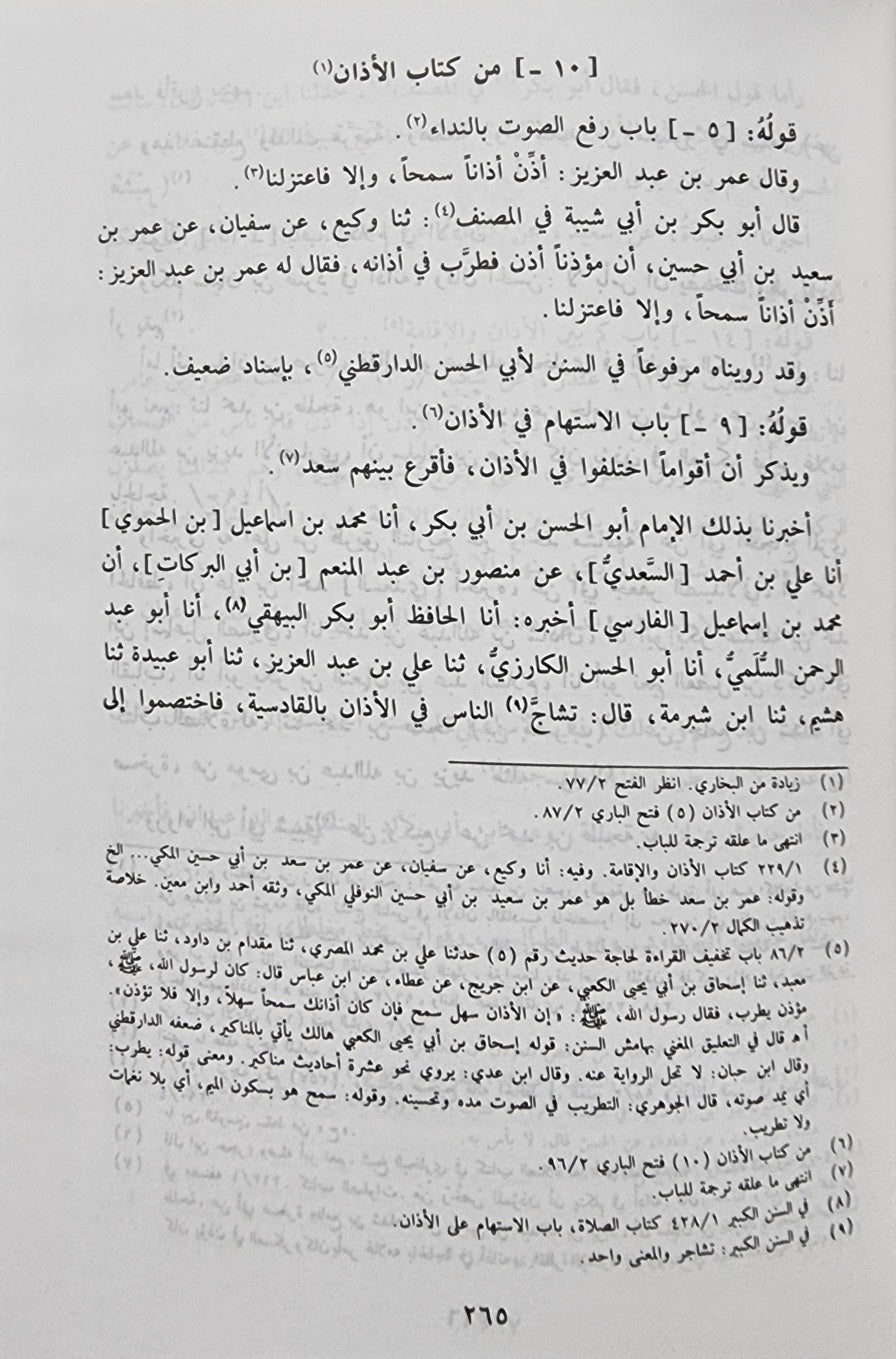 [ ١٠ - ] من كتاب الأذان(١)
قولُهُ: [ ٥ - ] باب رفع الصوت بالنداء(٢).
وقال عمر بن عبد العزيز: أذِّنْ أذاناً سمحاً، وإلا فاعتزلنا(٣).
قال أبو بكر بن أبي شيبة في المصنف(٤): ثنا وكيع، عن سفيان، عن عمر بن
سعيد بن أبي حسين، أن مؤذناً أذن فطرَّب في أذانه، فقال له عمر بن عبد العزيز:
أَذِّنْ أذاناً سمحاً، وإلا فاعتزلنا.
وقد رويناه مرفوعاً في السنن لأبي الحسن الدارقطني(٥)، بإسناد ضعيف.
قولُهُ: [ ٩ - ] باب الاستهام في الأذان(٦).
ويذكر أن أقواماً اختلفوا في الأذان، فأقرع بينهم سعد(٧).
أخبرنا بذلك الإمام أبو الحسن بن أبي بكر، أنا محمد بن اسماعيل [بن الحموي]
أنا علي بن أحمد [السَّعديُّ]، عن منصور بن عبد المنعم [بن أبي البركاتِ]، أن
محمد بن إسماعيل [الفارسي] أخبره: أنا الحافظ أبو بكر البيهقي(٨)، أنا أبو عبد
الرحمن السُّلَميُّ، أنا أبو الحسن الكارزيُّ، ثنا علي بن عبد العزيز، ثنا أبو عبيدة ثنا
هشيم، ثنا ابن شبرمة، قال: تشاجَّ(٩) الناس في الأذان بالقادسية، فاختصموا إلى
(١) زيادة من البخاري. انظر الفتح ٧٧/٢.
(٢) من كتاب الأذان (٥) فتح الباري ٨٧/٢.
(٣) انتهى ما علقه ترجمة للباب.
(٤) ٢٢٩/١ كتاب الأذان والإقامة. وفيه: أنا وكيع، عن سفيان، عن عمر بن سعد بن أبي حسين المكي... الخ
وقوله: عمر بن سعد خطأ بل هو عمر بن سعيد بن أبي حسين النوفلي المكي، وثقه أحمد وابن معين. خلاصة
تذهيب الكمال ٢٧٠/٢.
(٥) ٨٦/٢ باب تخفيف القراءة لحاجة حديث رقم (٥) حدثنا علي بن محمد المصري، ثنا مقدام بن داود، ثنا علي بن
معبد، ثنا إسحاق بن أبي يحيى الكعبي، عن ابن جريج، عن عطاء، عن ابن عباس قال: كان لرسول الله، ﷺ،
مؤذن يطرب، فقال رسول الله، ﷺ: «إن الأذان سهل سمح فإن كان أذانك سمحاً سهلاً، وإلا فلا تؤذن».
أ هـ قال في التعليق المغني بهامش السنن: قوله إسحاق بن أبي يحيى الكعبي هالك يأتي بالمناكير، ضعفه الدارقطني
وقال ابن حبان: لا تحل الرواية عنه. وقال ابن عدي: يروي نحو عشرة أحاديث مناكير. ومعنى قوله: يطرب:
أي يمد صوته، قال الجوهري: التطريب في الصوت مده وتحسينه. وقوله: سمح هو بسكون الميم، أي بلا نغمات
ولا تطريب.
(٦) من كتاب الأذان (١٠) فتح الباري ٩٦/٢.
(٧) انتهى ما علقه ترجمة للباب.
(٨) في السنن الكبير ٤٢٨/١ كتاب الصلاة، باب الاستهام على الأذان.
(٩) في السنن الكبير: تشاجر والمعنى واحد.
٢٦٥